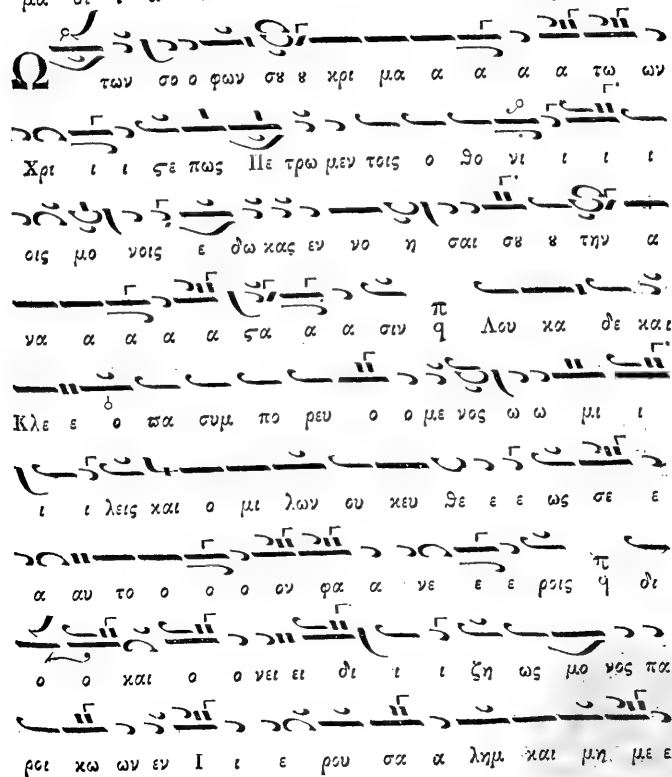 Ω των σο ο φων σȣ ȣ κρι μα α α α α τω ων
Χρι ι ι ϛε πως Πε τρω μεν τοις ο θο νι ι ι ι
οις μο νοις ε δω κας εν νο η σαι σȣ ȣ την α
να α α α α ϛα α α σιν π q Λου κα δε και
Κλε ε ο πα συμ πο ρευ ο ο με νος ω ω μι ι
ι ι λεις και ο μι λων ου κευ θε ε ε ως σε ε
α αυ το ο ο ο ον φα α νε ε ε ροις π q δι
ο ο και ο ο νει ει δι ι ι ζη ως μο νος πα
ροι κω ων εν Ι ι ε ρου σα α λημ και μη με ε